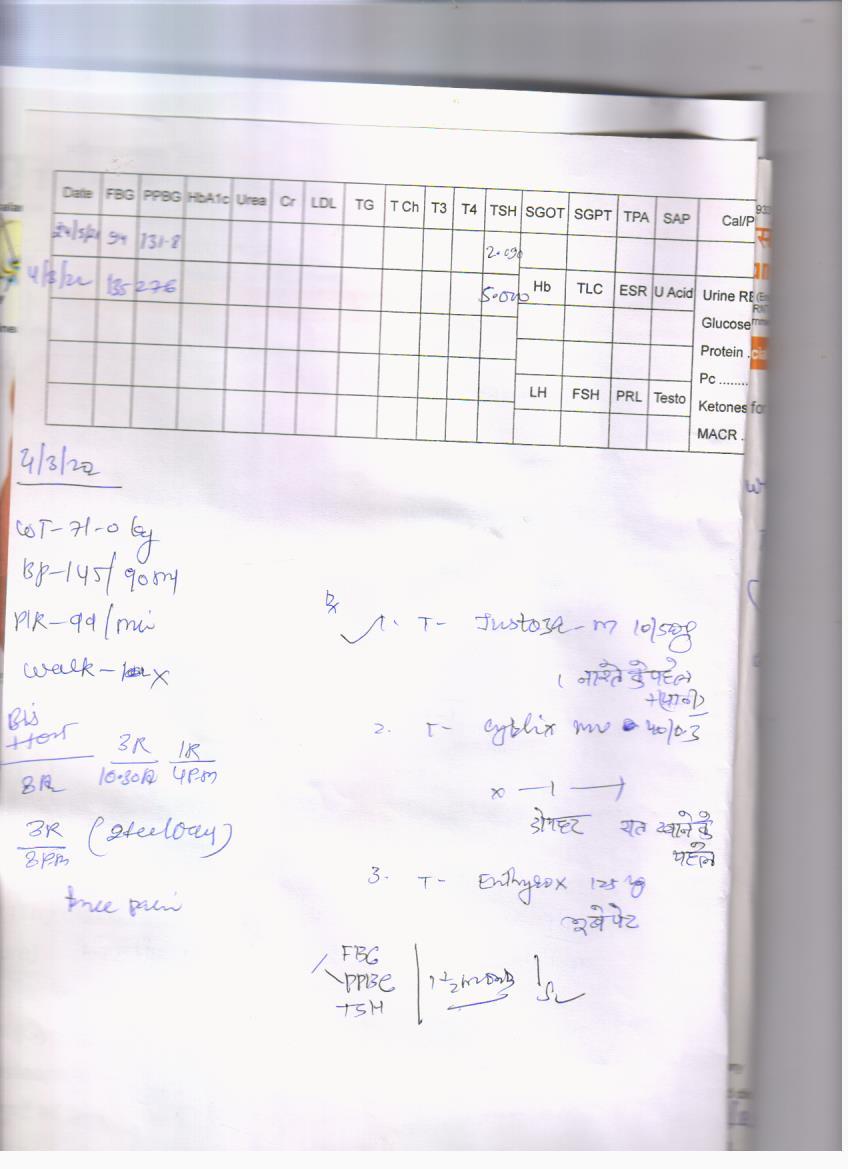 Date FBG PPBG HbA1c Urea Cr LDL TG T Ch T3 T4 TSH SGOT SGPT TPA SAP Cal/P
94 131.8 2.090
4/3/22 135 276 5.00
Hb TLC ESR U Acid Urine RE
Glucose
Protein .
Pc ........
LH FSH PRL Testo
Ketones
MACR .
4/3/22
WT-71-0 kg
BP-145/90
P/R-99/min
Walk- x
3R 1R
10.30A 4PM
8A
3R
8PM
knee pain
Rx
1. T- M 10/500
1 नाश्ते के पहले
2. T- 40/0.3
x — 1 —
दोपहर रात खाने के
पहले
3. T- Enthyrox 125
भूखे पेट
FBG
PPBG
TSH